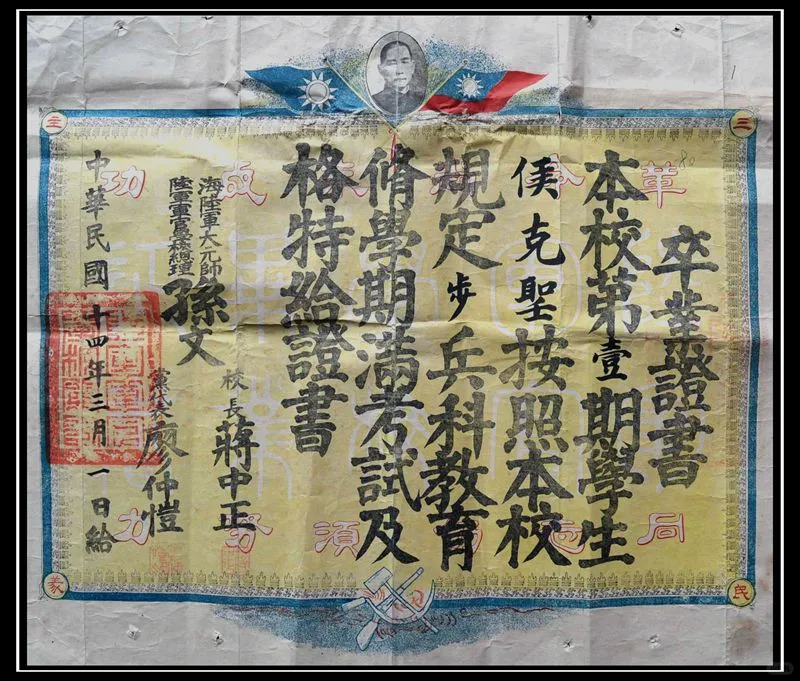 三民主義
革命尚未成功
同志仍須努力
卒業證書
本校第壹期學生
侯克聖按照本校
規定步兵科教育
脩學期滿考試及
格特給證書
海陸軍大元帥
陸軍軍官學校總理
孫文
校長蔣中正
黨代表廖仲愷
中華民國十四年三月一日給